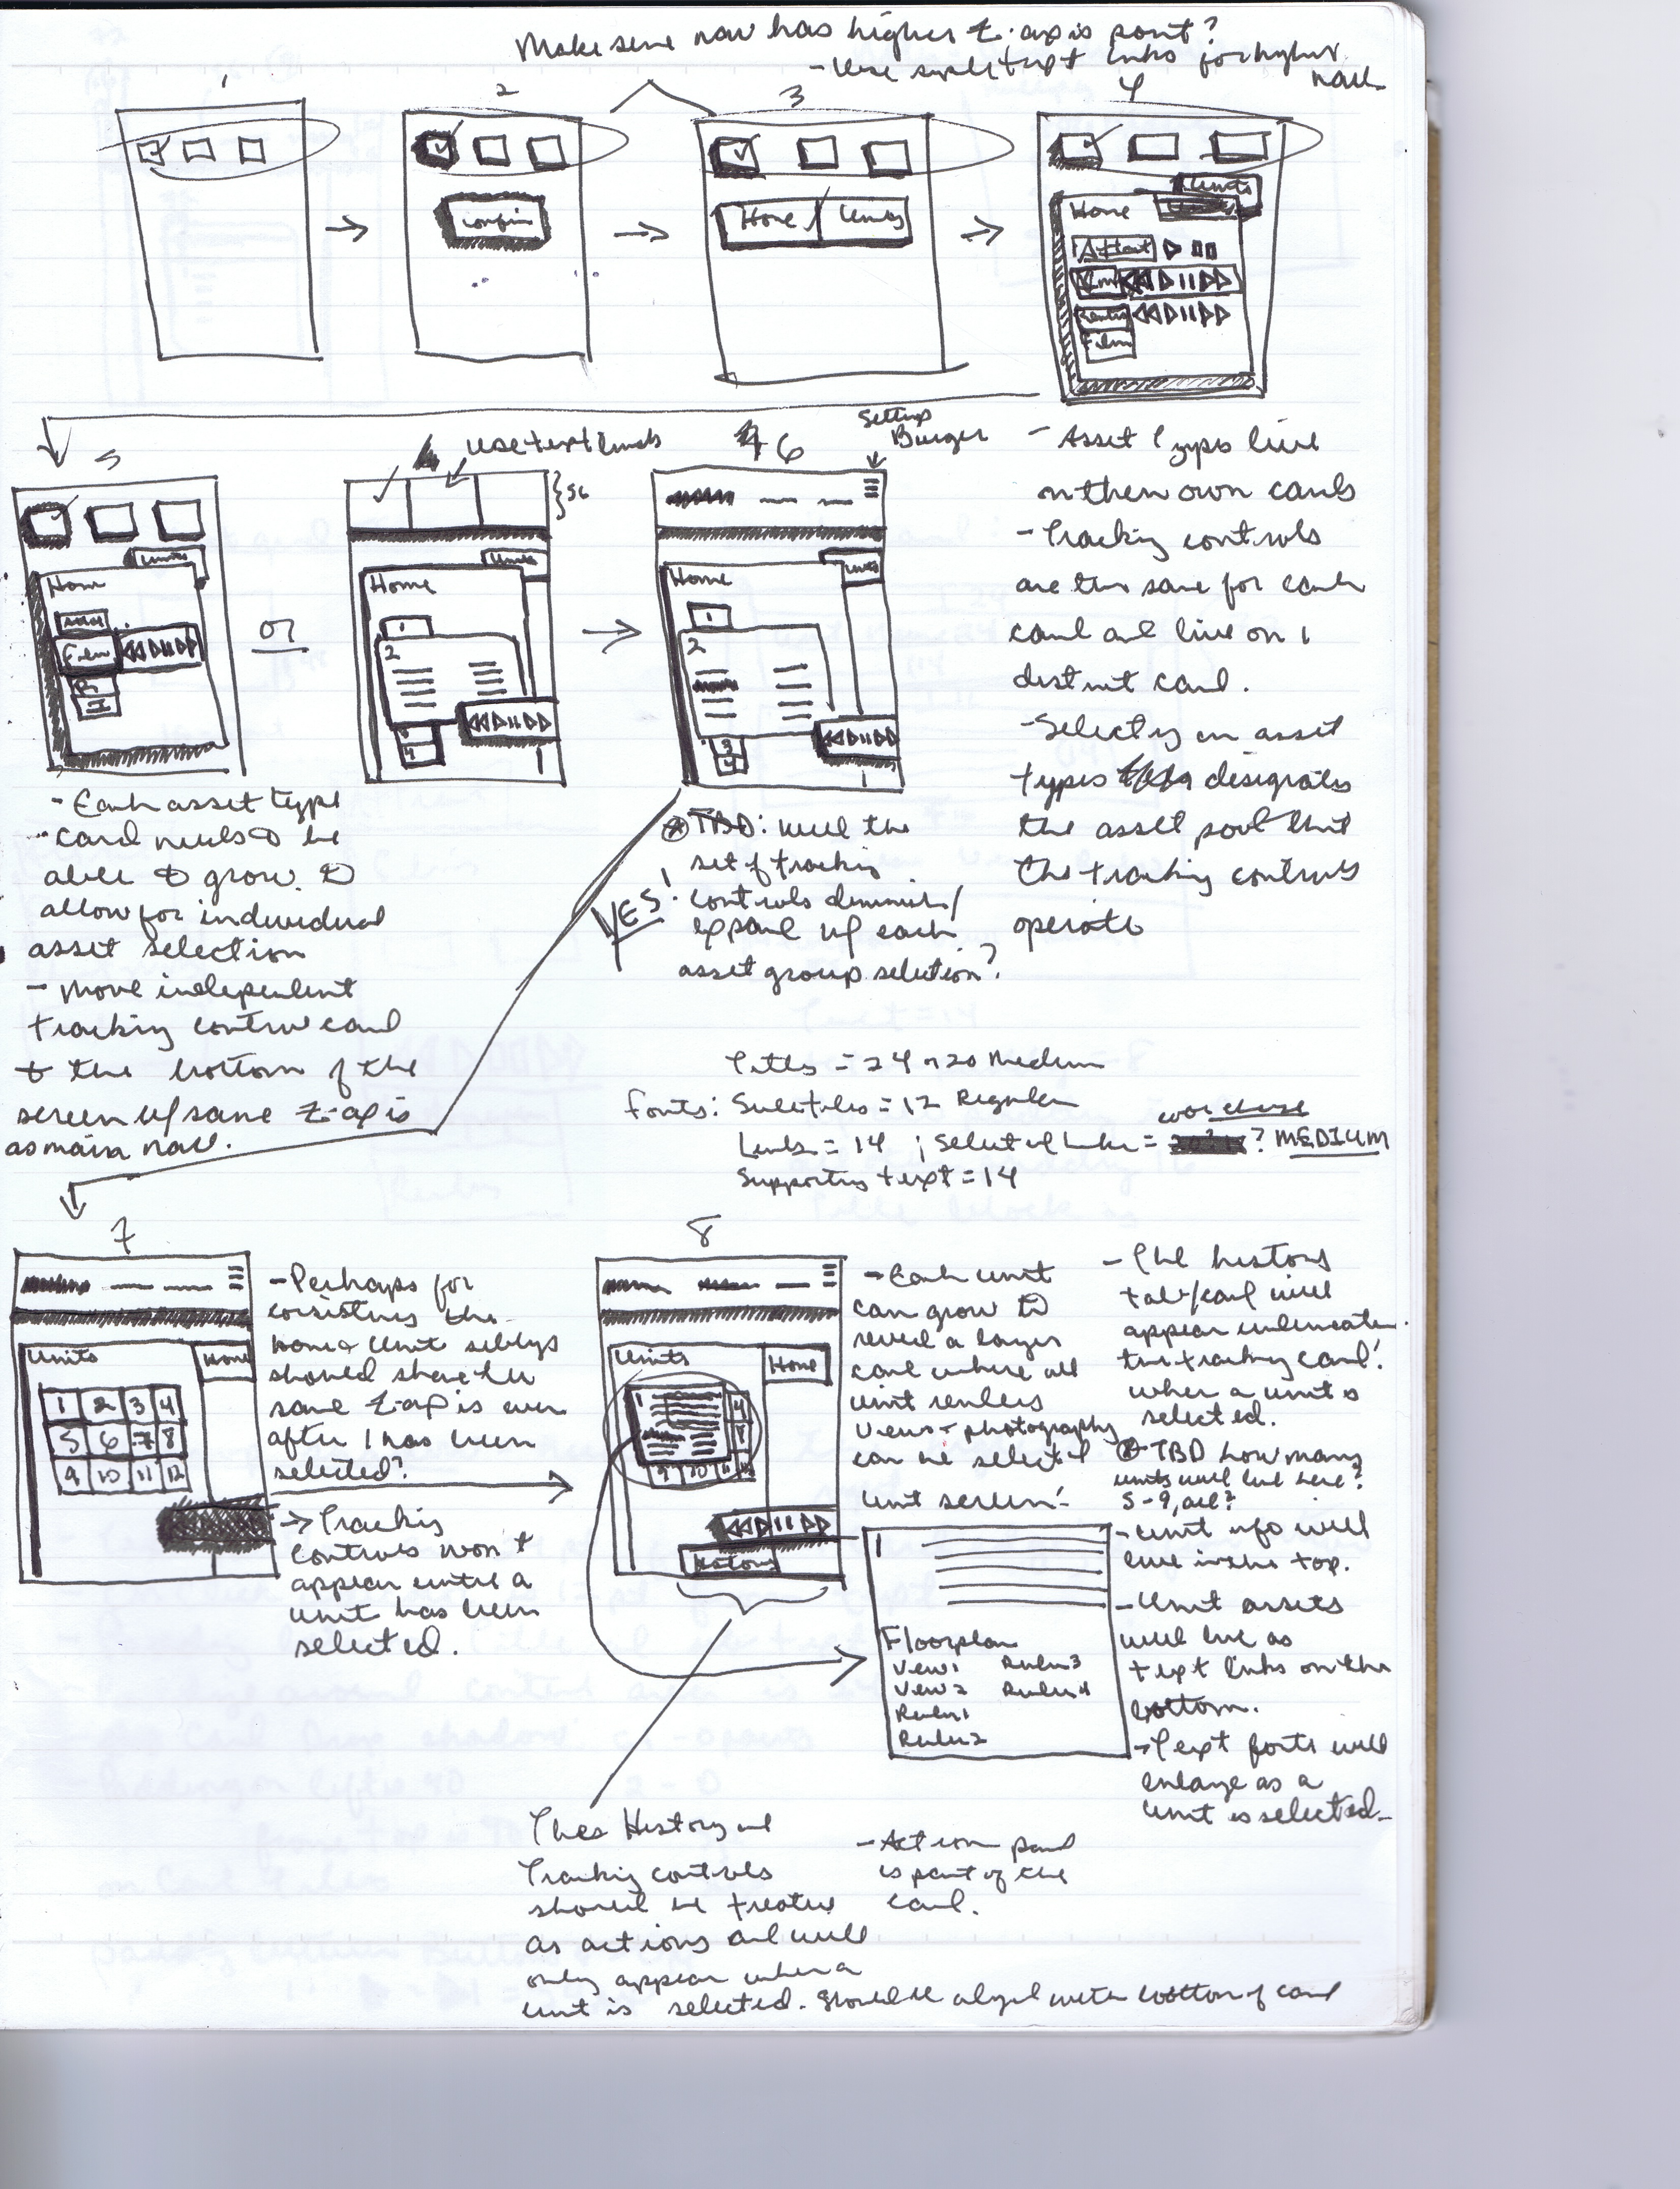 Make sure nav has higher Z-axis point?
- Use simple text links for higher
nav.
1
2
3
4
confirm
Home / Units
Units
Home
Film
5
Use text links
6
Settings
Burger
56
Units
Home
Film
or
Units
Home
1
2
3
4
Units
Home
1
2
3
4
- Asset types live
on their own cards
- Tracking controls
are the same for each
card and live on 1
distinct card.
- Selecting an asset
types designates
the asset pool that
the tracking controls
operate
- Each asset type
card needs to be
able to grow to
allow for individual
asset selection
- Move independent
tracking control card
to the bottom of the
screen w/ same Z-axis
as main nav.
TBD: will the
set of tracking
controls diminish/
expand w/ each
asset group selection?
YES!
Titles = 24 or 20 Medium
Fonts: Subtitles = 12 Regular
Links = 14 ; Selected links = ? MEDIUM
Supporting text = 14
7
Units
Home
1 2 3 4
5 6 7 8
9 10 11 12
- Perhaps for
consistency the
home & unit siblings
should share the
same Z-axis even
after 1 has been
selected?
→ Tracking
controls won't
appear until a
unit has been
selected.
8
Units
Home
1
4
8
9 10 11 12
History
- Each unit
can grow to
reveal a larger
card where all
unit renders
views + photography
can be selected
unit screen:
1
Floorplan
View 1 Render 3
View 2 Render 4
Render 1
Render 2
- The history
tab/card will
appear underneath
the tracking card
when a unit is
selected.
TBD how many
units will live here?
5-9, all?
- Unit info will
live in the top.
- Unit assets
will live as
text links on the
bottom.
- Text fonts will
enlarge as a
unit is selected.
The History and
Tracking controls
should be treated
as actions and will
only appear when a
unit is selected. Should be aligned with bottom of card
- Action panel
is part of the
card.